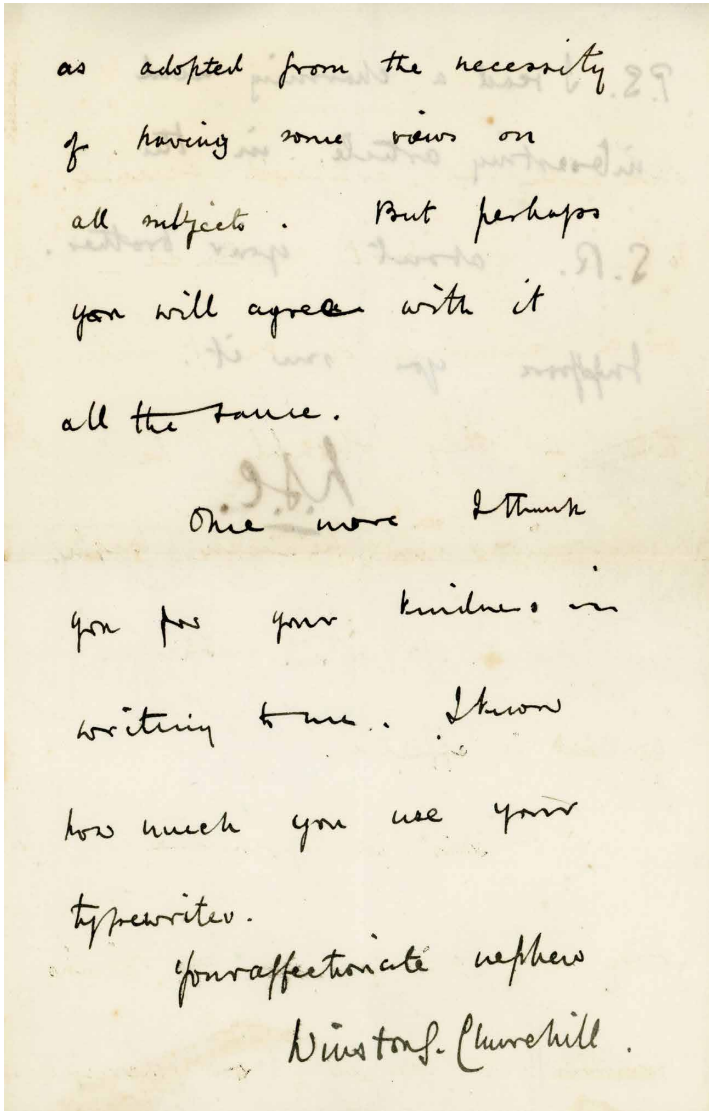 as adopted from the necessity
of having some views on
all subjects. But perhaps
you will agree with it
all the same.
Once more I thank
you for your kindness in
writing to me. I know
how much you use your
typewriter.
Your affectionate nephew
Winston S. Churchill.